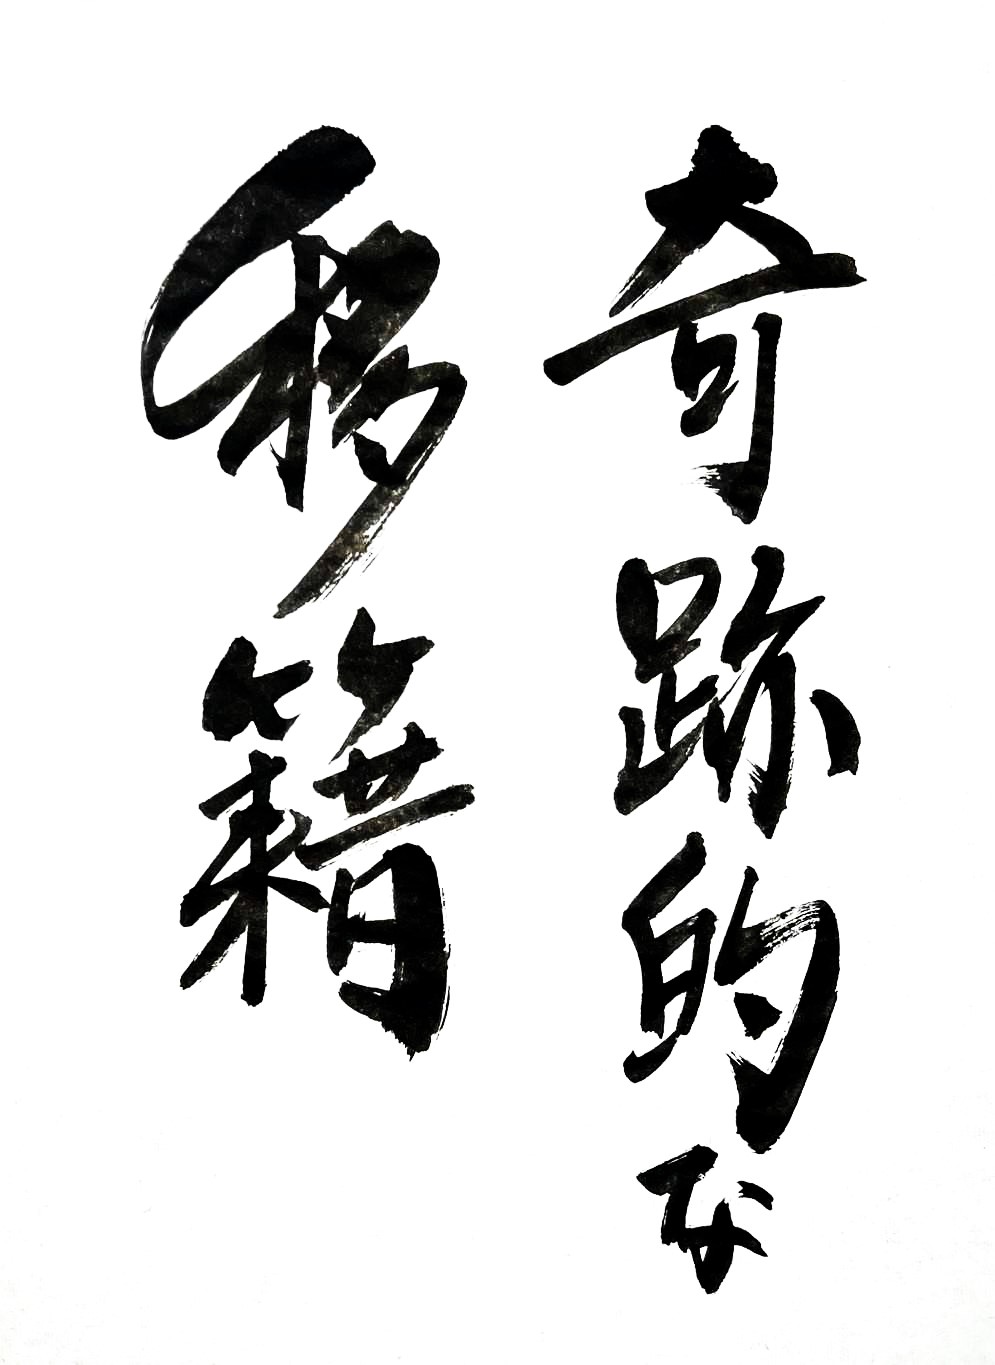 奇跡的な
移籍